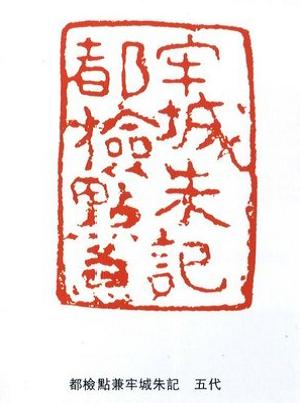 都檢點兼
牢城朱記
都檢點兼牢城朱記 五代